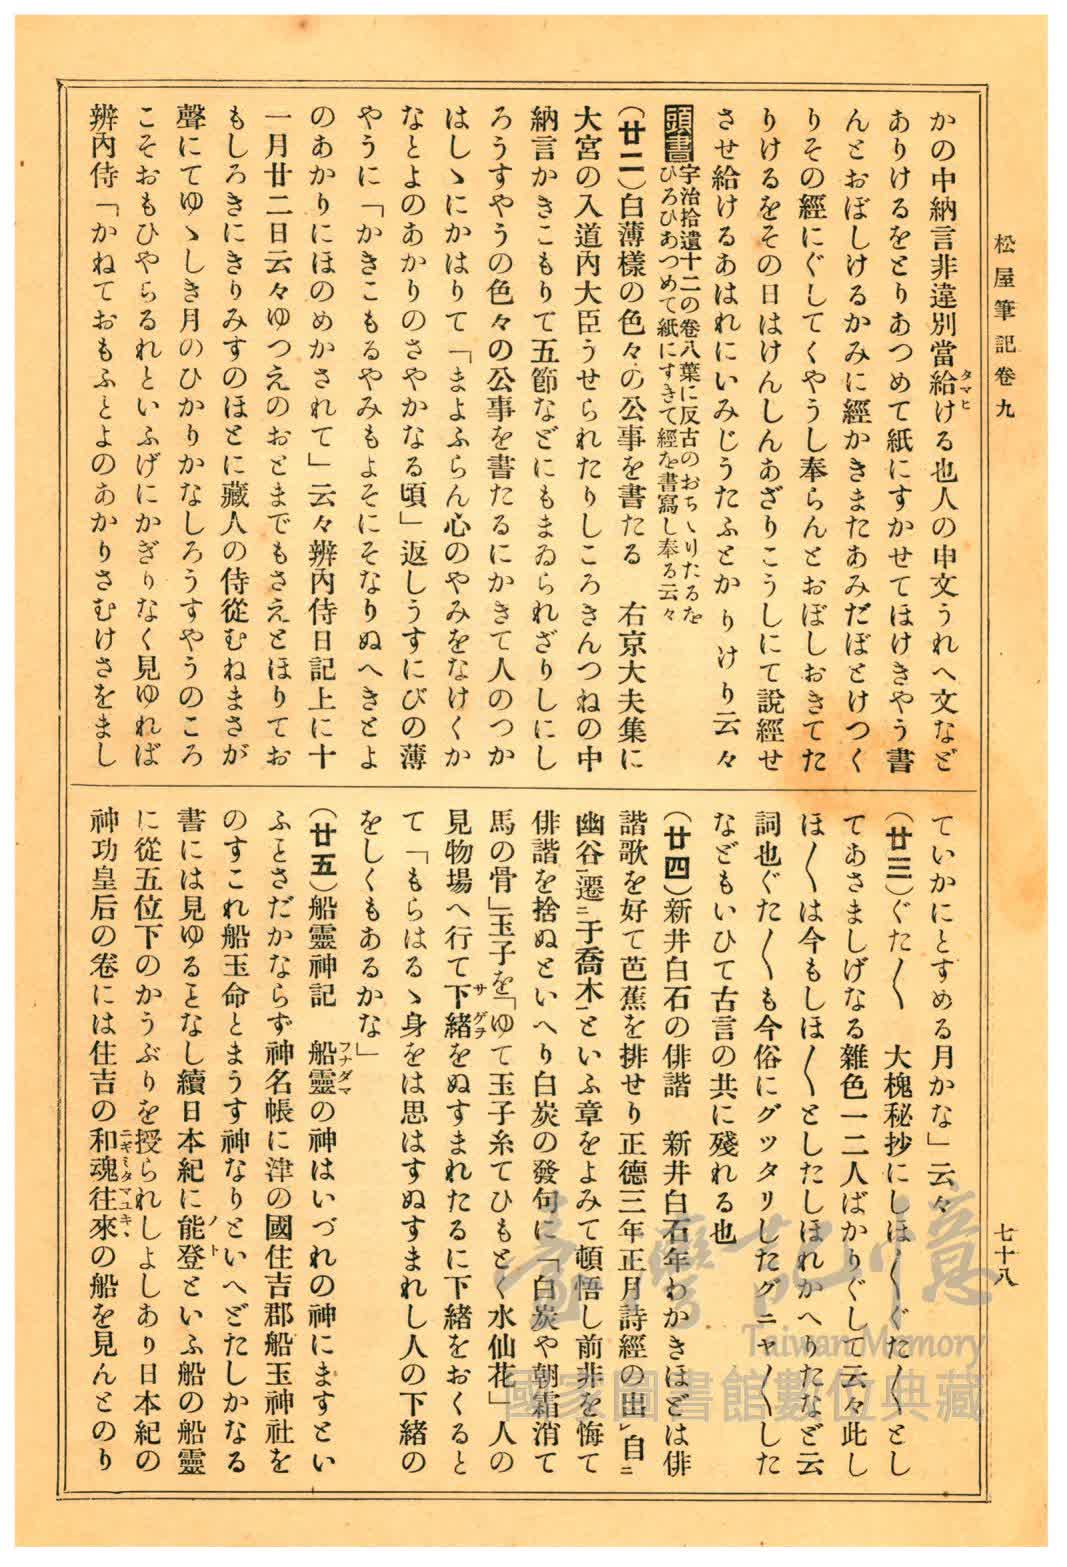 松屋筆記卷九
七十八
かの中納言非違別當給ける也人の申文うれへ文など
タマヒ
ありけるをとりあつめて紙にすかせてほけきやう書
んとおぼしけるかみに經かきまたあみだぼとけつく
りその經にぐしてくやうし奉らんとおぼしおきてた
りけるをその日はけんしんあざりこうしにて說經せ
させ給けるあはれにいみじうたふとかりけり云々
頭書宇治拾遺十二の卷八葉に反古のおちゝりたるを
ひろひあつめて紙にすきて經を書寫し奉る云々
(廿二)白薄樣の色々の公事を書たる 右京大夫集に
大宮の入道內大臣うせられたりしころきんつねの中
納言かきこもりて五節などにもまゐられざりしにし
ろうすやうの色々の公事を書たるにかきて人のつか
はしゝにかはりて「まよふらん心のやみをなけくか
なとよのあかりのさやかなる頃」返しうすにびの薄
やうに「かきこもるやみもよそにそなりぬへきとよ
のあかりにほのめかされて」云々辨內侍日記上に十
一月廿二日云々ゆつえのおとまでもさえとほりてお
もしろきにきりみすのほとに藏人の侍從むねまさが
聲にてゆゝしき月のひかりかなしろうすやうのころ
こそおもひやらるれといふげにかぎりなく見ゆれば
辨內侍「かねておもふとよのあかりさむけさをまし
ていかにとすめる月かな」云々
(廿三)ぐた〱 大槐秘抄にしほ〱ぐた〱とし
てあさましげなる雜色一二人ばかりぐして云々此し
ほ〱は今もしほ〱としたしほれかへりたなど云
詞也ぐた〱も今俗にグッタリしたグニャ〱した
などもいひて古言の共に殘れる也
(廿四)新井白石の俳諧 新井白石年わかきほどは俳
諧歌を好て芭蕉を排せり正德三年正月詩經の出」自ニ
幽谷「遷ニ于喬木」といふ章をよみて頓悟し前非を悔て
俳諧を捨ぬといへり白炭の發句に「白炭や朝霜消て
馬の骨」玉子を「ゆて玉子糸てひもとく水仙花」人の
見物場へ行て下緒をぬすまれたるに下緒をおくると
サゲヲ
て「もらはるゝ身をは思はすぬすまれし人の下緒の
をしくもあるかな」
(廿五)船靈神記 船靈の神はいづれの神にますとい
フナダマ
ふとさだかならず神名帳に津の國住吉郡船玉神社を
のすこれ船玉命とまうす神なりといへどたしかなる
書には見ゆるとなし續日本紀に能登といふ船の船靈
ノト
に從五位下のかうぶりを授られしよしあり日本紀の
神功皇后の卷には住吉の和魂往來の船を見んとのり
ニギミタマユキ、
臺灣記憶
Taiwan Memory
國家圖書館數位典藏